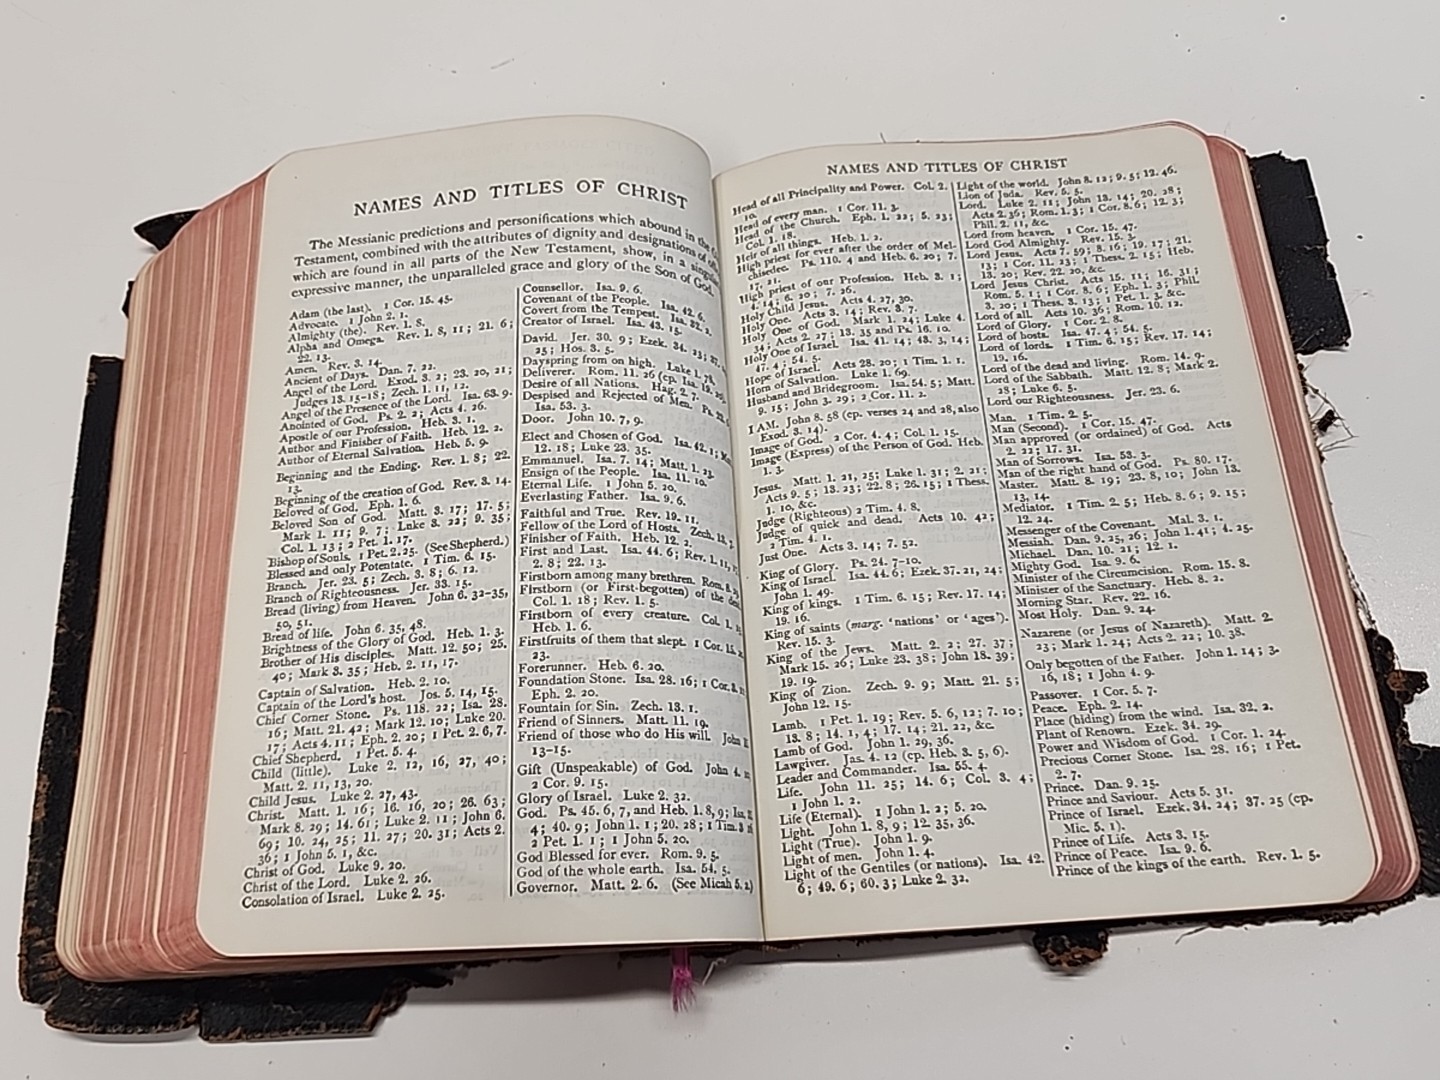 NAMES AND TITLES OF CHRIST
The Messianic predictions and personifications which abound in the
Testament, combined with the attributes of dignity and designations of
which are found in all parts of the New Testament, show, in a singular
expressive manner, the unparalleled grace and glory of the Son of God.
Adam (the last). 1 Cor. 15. 45.
Advocate. 1 John 2. 1.
Almighty (the). Rev. 1. 8.
Alpha and Omega. Rev. 1. 8, 11; 21. 6;
22. 13.
Amen. Rev. 3. 14.
Ancient of Days. Dan. 7. 22.
Angel of the Lord. Exod. 3. 2; 23. 20, 21;
Judges 13. 15-18; Zech. 1. 11, 12.
Angel of the Presence of the Lord. Isa. 63. 9.
Anointed of God. Ps. 2. 2; Acts 4. 26.
Apostle of our Profession. Heb. 3. 1.
Author and Finisher of Faith. Heb. 12. 2.
Author of Eternal Salvation. Heb. 5. 9.
Beginning and the Ending. Rev. 1. 8; 22.
13.
Beginning of the creation of God. Rev. 3. 14.
Beloved of God. Eph. 1. 6.
Beloved Son of God. Matt. 3. 17; 17. 5;
Mark 1. 11; 9. 7; Luke 3. 22; 9. 35;
Col. 1. 13; 2 Pet. 1. 17.
Bishop of Souls. 1 Pet. 2. 25. (See Shepherd.)
Blessed and only Potentate. 1 Tim. 6. 15.
Branch. Jer. 23. 5; Zech. 3. 8; 6. 12.
Branch of Righteousness. Jer. 33. 15.
Bread (living) from Heaven. John 6. 32-35,
50, 51.
Bread of life. John 6. 35, 48.
Brightness of the Glory of God. Heb. 1. 3.
Brother of His disciples. Matt. 12. 50; 25.
40; Mark 3. 35; Heb. 2. 11, 17.
Captain of Salvation. Heb. 2. 10.
Captain of the Lord's host. Jos. 5. 14, 15.
Chief Corner Stone. Ps. 118. 22; Isa. 28.
16; Matt. 21. 42; Mark 12. 10; Luke 20.
17; Acts 4. 11; Eph. 2. 20; 1 Pet. 2. 6, 7.
Chief Shepherd. 1 Pet. 5. 4.
Child (little). Luke 2. 12, 16, 27, 40;
Matt. 2. 11, 13, 20.
Child Jesus. Luke 2. 27, 43.
Christ. Matt. 1. 16; 16. 16, 20; 26. 63;
Mark 8. 29; 14. 61; Luke 2. 11; John 6.
69; 10. 24, 25; 11. 27; 20. 31; Acts 2.
36; 1 John 5. 1, &c.
Christ of God. Luke 9. 20.
Christ of the Lord. Luke 2. 26.
Consolation of Israel. Luke 2. 25.
Counsellor. Isa. 9. 6.
Covenant of the People. Isa. 42. 6.
Covert from the Tempest. Isa. 32. 2.
Creator of Israel. Isa. 43. 15.
David. Jer. 30. 9; Ezek. 34. 23; 37.
25; Hos. 3. 5.
Dayspring from on high. Luke 1. 78.
Deliverer. Rom. 11. 26 (cp. Isa.
Desire of all Nations. Hag. 2. 7.
Despised and Rejected of Men. Ps.
Isa. 53. 3.
Door. John 10. 7, 9.
Elect and Chosen of God. Isa. 42. 1;
12. 18; Luke 23. 35.
Emmanuel. Isa. 7. 14; Matt. 1. 23.
Ensign of the People. Isa. 11. 10.
Eternal Life. 1 John 5. 20.
Everlasting Father. Isa. 9. 6.
Faithful and True. Rev. 19. 11.
Fellow of the Lord of Hosts. Zech. 13. 7.
Finisher of Faith. Heb. 12. 2.
First and Last. Isa. 44. 6; Rev. 1. 11, 17;
2. 8; 22. 13.
Firstborn among many brethren. Rom. 8. 29.
Firstborn (or First-begotten) of the dead.
Col. 1. 18; Rev. 1. 5.
Firstborn of every creature. Col. 1. 15;
Heb. 1. 6.
Firstfruits of them that slept. 1 Cor. 15. 20,
23.
Forerunner. Heb. 6. 20.
Foundation Stone. Isa. 28. 16; 1 Cor. 3. 11;
Eph. 2. 20.
Fountain for Sin. Zech. 13. 1.
Friend of Sinners. Matt. 11. 19.
Friend of those who do His will. John
13-15.
Gift (Unspeakable) of God. John 4. 10;
2 Cor. 9. 15.
Glory of Israel. Luke 2. 32.
God. Ps. 45. 6, 7, and Heb. 1. 8, 9; Isa.
4; 40. 9; John 1. 1; 20. 28; 1 Tim. 3. 16;
2 Pet. 1. 1; 1 John 5. 20.
God Blessed for ever. Rom. 9. 5.
God of the whole earth. Isa. 54. 5.
Governor. Matt. 2. 6. (See Micah 5. 2.)
NAMES AND TITLES OF CHRIST
Head of all Principality and Power. Col. 2.
10.
Head of every man. 1 Cor. 11. 3.
Head of the Church. Eph. 1. 22; 5. 23;
Col. 1. 18.
Heir of all things. Heb. 1. 2.
High priest for ever after the order of Mel-
chisedec. Ps. 110. 4 and Heb. 6. 20; 7.
17, 21.
High priest of our Profession. Heb. 3. 1;
4. 14; 6. 20; 7. 26.
Holy Child Jesus. Acts 4. 27, 30.
Holy One. Acts 3. 14; Rev. 3. 7.
Holy One of God. Mark 1. 24; Luke 4.
34; Acts 2. 27; 13. 35 and Ps. 16. 10.
Holy One of Israel. Isa. 41. 14; 43. 3, 14;
47. 4; 54. 5.
Hope of Israel. Acts 28. 20; 1 Tim. 1. 1.
Horn of Salvation. Luke 1. 69.
Husband and Bridegroom. Isa. 54. 5; Matt.
9. 15; John 3. 29; 2 Cor. 11. 2.
I AM. John 8. 58 (cp. verses 24 and 28, also
Exod. 3. 14).
Image of God. 2 Cor. 4. 4; Col. 1. 15.
Image (Express) of the Person of God. Heb.
1. 3.
Jesus. Matt. 1. 21, 25; Luke 1. 31; 2. 21;
Acts 9. 5; 13. 23; 22. 8; 26. 15; 1 Thess.
1. 10, &c.
Judge (Righteous) 2 Tim. 4. 8.
Judge of quick and dead. Acts 10. 42;
2 Tim. 4. 1.
Just One. Acts 3. 14; 7. 52.
King of Glory. Ps. 24. 7-10.
King of Israel. Isa. 44. 6; Ezek. 37. 21, 24;
John 1. 49.
King of kings. 1 Tim. 6. 15; Rev. 17. 14;
19. 16.
King of saints (marg. 'nations' or 'ages').
Rev. 15. 3.
King of the Jews. Matt. 2. 2; 27. 37;
Mark 15. 26; Luke 23. 38; John 18. 39;
19. 19.
King of Zion. Zech. 9. 9; Matt. 21. 5;
John 12. 15.
Lamb. 1 Pet. 1. 19; Rev. 5. 6, 12; 7. 10;
13. 8; 14. 1, 4; 17. 14; 21. 22, &c.
Lamb of God. John 1. 29, 36.
Lawgiver. Jas. 4. 12 (cp. Heb. 3. 5, 6).
Leader and Commander. Isa. 55. 4.
Life. John 11. 25; 14. 6; Col. 3. 4;
1 John 1. 2.
Life (Eternal). 1 John 1. 2; 5. 20.
Light. John 1. 8, 9; 12. 35, 36.
Light (True). John 1. 9.
Light of men. John 1. 4.
Light of the Gentiles (or nations). Isa. 42.
6; 49. 6; 60. 3; Luke 2. 32.
Light of the world. John 8. 12; 9. 5; 12. 46.
Lion of Juda. Rev. 5. 5.
Lord. Luke 2. 11; John 13. 14; 20. 28;
Acts 2. 36; Rom. 1. 3; 1 Cor. 8. 6; 12. 3;
Phil. 2. 11, &c.
Lord from heaven. 1 Cor. 15. 47.
Lord God Almighty. Rev. 15. 3.
Lord Jesus. Acts 7. 59; 8. 16; 19. 17; 21.
13; 1 Cor. 11. 23; 1 Thess. 2. 15; Heb.
13. 20; Rev. 22. 20, &c.
Lord Jesus Christ. Acts 15. 11; 16. 31;
Rom. 5. 1; 1 Cor. 8. 6; Eph. 1. 3; Phil.
3. 20; 1 Thess. 3. 13; 1 Pet. 1. 3, &c.
Lord of all. Acts 10. 36; Rom. 10. 12.
Lord of Glory. 1 Cor. 2. 8.
Lord of hosts. Isa. 47. 4; 54. 5.
Lord of lords. 1 Tim. 6. 15; Rev. 17. 14;
19. 16.
Lord of the dead and living. Rom. 14. 9.
Lord of the Sabbath. Matt. 12. 8; Mark 2.
28; Luke 6. 5.
Lord our Righteousness. Jer. 23. 6.
Man. 1 Tim. 2. 5.
Man (Second). 1 Cor. 15. 47.
Man approved (or ordained) of God. Acts
2. 22; 17. 31.
Man of Sorrows. Isa. 53. 3.
Man of the right hand of God. Ps. 80. 17.
Master. Matt. 8. 19; 23. 8, 10; John 13.
13, 14.
Mediator. 1 Tim. 2. 5; Heb. 8. 6; 9. 15;
12. 24.
Messenger of the Covenant. Mal. 3. 1.
Messiah. Dan. 9. 25, 26; John 1. 41; 4. 25.
Michael. Dan. 10. 21; 12. 1.
Mighty God. Isa. 9. 6.
Minister of the Circumcision. Rom. 15. 8.
Minister of the Sanctuary. Heb. 8. 2.
Morning Star. Rev. 22. 16.
Most Holy. Dan. 9. 24.
Nazarene (or Jesus of Nazareth). Matt. 2.
23; Mark 1. 24; Acts 2. 22; 10. 38.
Only begotten of the Father. John 1. 14; 3.
16, 18; 1 John 4. 9.
Passover. 1 Cor. 5. 7.
Peace. Eph. 2. 14.
Place (hiding) from the wind. Isa. 32. 2.
Plant of Renown. Ezek. 34. 29.
Power and Wisdom of God. 1 Cor. 1. 24.
Precious Corner Stone. Isa. 28. 16; 1 Pet.
2. 7.
Prince. Dan. 9. 25.
Prince and Saviour. Acts 5. 31.
Prince of Israel. Ezek. 34. 24; 37. 25 (cp.
Mic. 5. 1).
Prince of Life. Acts 3. 15.
Prince of Peace. Isa. 9. 6.
Prince of the kings of the earth. Rev. 1. 5.